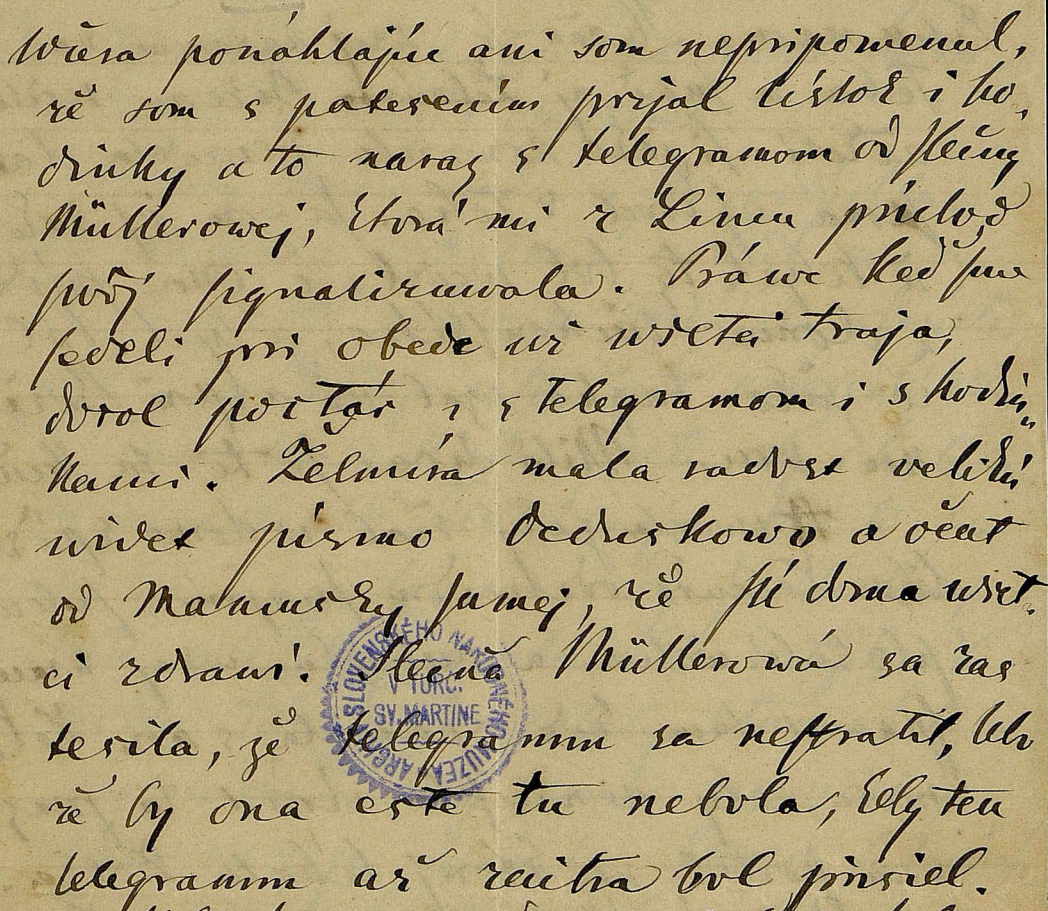 Wčera ponáhlajúc ani som nepripomenul,
že som s potešením prijal lístok i ho-
dinky a to naraz s telegramom od slečny
Müllerowej, ktorá mi z Lincu príchod
swôj signalizuwala. Práwe keď sme
sedeli pri obede už wšetci traja,
došol poštár i s telegramom i s hodin-
kami. Želmíra mala radosť velikú
widet písmo deduškowo a očut
od Mamušky samej, že sú doma wšet-
ci zdrawí. Slečna Müllerowá sa zas
tešila, že telegramm sa neztratil, lebo
že by ona ešte tu nebola, keby ten
telegramm až zaitra bol prišiel.
ARCHÍV SLOVENSKÉHO NÁRODNÉHO MÚZEA
V TURČ.
SV. MARTINE